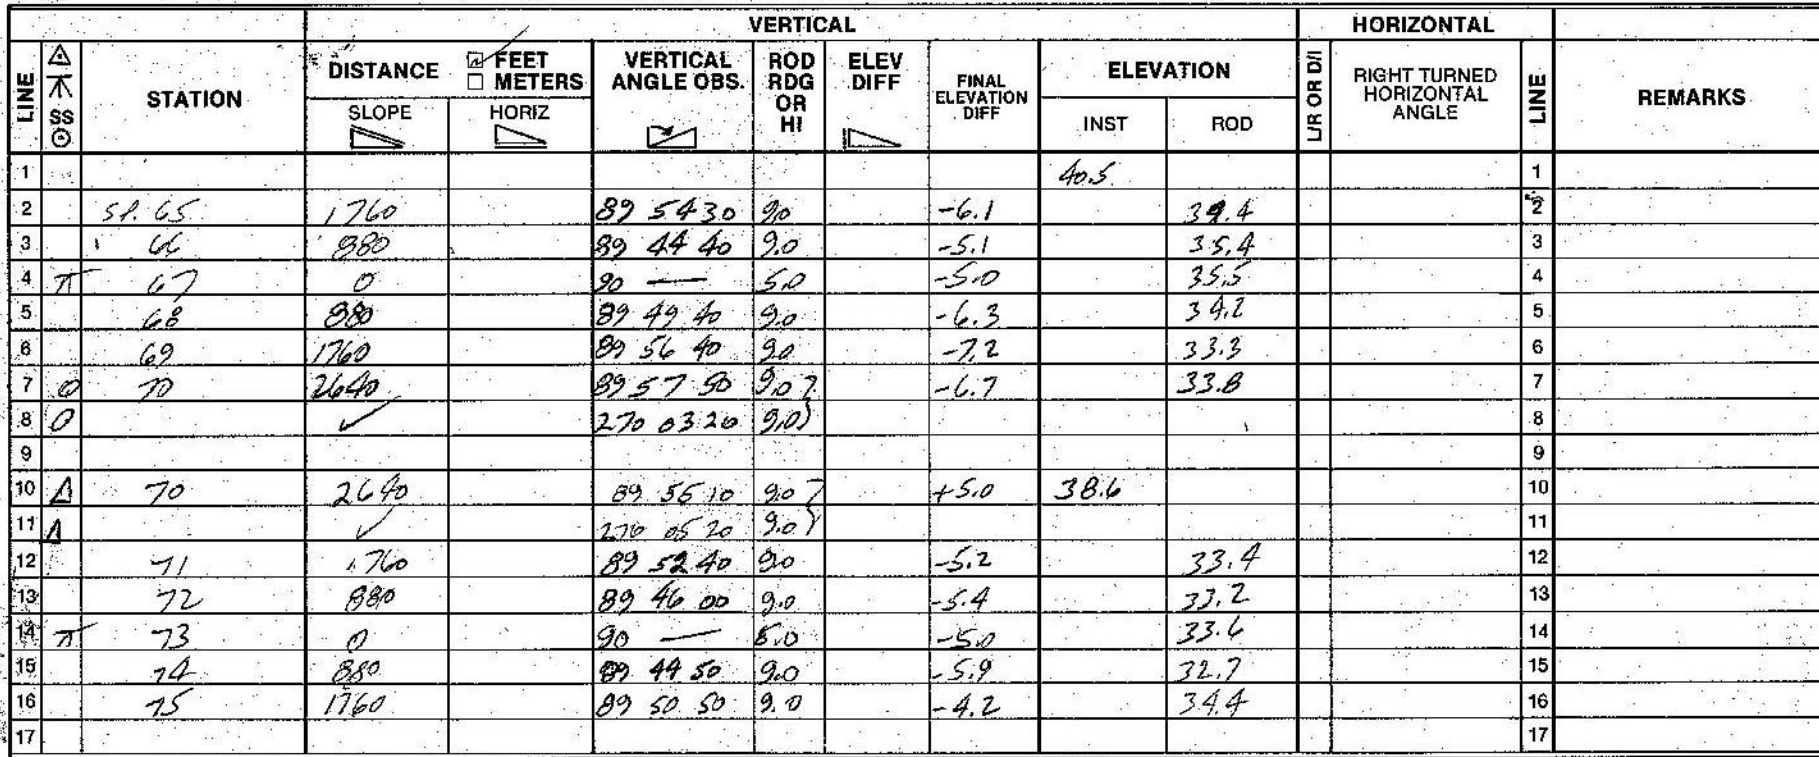 VERTICAL HORIZONTAL
LINE SS STATION DISTANCE FEET METERS SLOPE HORIZ VERTICAL ANGLE OBS. ROD RDG OR HI ELEV DIFF FINAL ELEVATION DIFF ELEVATION INST ROD L/R OR D/I RIGHT TURNED HORIZONTAL ANGLE LINE REMARKS
1 40.5 1
2 SP. 65 1760 89 54 30 9.0 -6.1 34.4 2
3 66 880 89 44 40 9.0 -5.1 35.4 3
4 π 67 0 90 — 5.0 -5.0 35.5 4
5 68 880 89 49 40 9.0 -6.3 34.2 5
6 69 1760 89 56 40 9.0 -7.2 33.3 6
7 O 70 2640 89 57 50 9.0 -6.7 33.8 7
8 O ✓ 270 03 20 9.0 8
9 9
10 Δ 70 2640 89 55 10 9.0 +5.0 38.6 10
11 Δ ✓ 270 05 20 9.0 11
12 71 1760 89 52 40 9.0 -5.2 33.4 12
13 72 880 89 46 00 9.0 -5.4 33.2 13
14 π 73 0 90 — 5.0 -5.0 33.6 14
15 74 880 89 44 50 9.0 -5.9 32.7 15
16 75 1760 89 50 50 9.0 -4.2 34.4 16
17 17